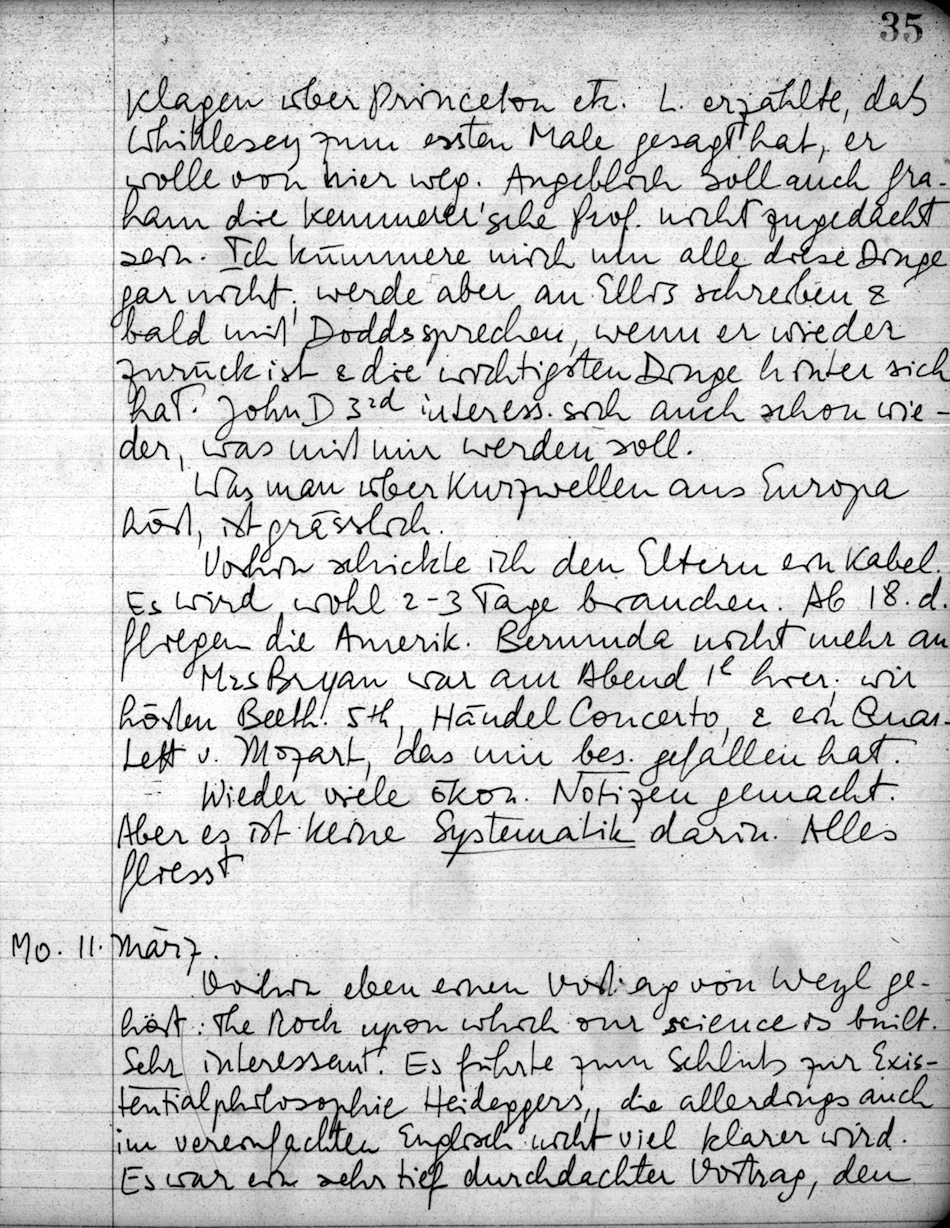 35
Klagen über Princeton etc. L. erzählte, daß
Whittlesey zum ersten Male gesagt hat, er
wolle von hier weg. Angeblich soll auch Gra-
ham die Kemmerer'sche Prof. nicht zugedacht
sein. Ich kümmere mich um alle diese Dinge
gar nicht, werde aber an Ellis schreiben &
bald mit Dodds sprechen, wenn er wieder
zurück ist & die wichtigsten Dinge hinter sich
hat. John D 3rd interess. sich auch schon wie-
der, was mit mir werden soll.
Was man über Kurzwellen aus Europa
hört, ist grässlich.
Vorhin schickte ich den Eltern ein Kabel.
Es wird wohl 2-3 Tage brauchen. Ab 18. d.
fliegen die Amerik. Bermuda nicht mehr an
Mrs Bryan war am Abend hier; wir
hörten Beeth. 5th, Händel Concerto, & ein Quar-
tett v. Mozart, das mir bes. gefallen hat.
Wieder viele ökon. Notizen gemacht.
Aber es ist keine Systematik darin. Alles
fliesst
Mo. 11. März.
Vorhin eben einen Vortrag von Weyl ge-
hört: The Rock upon which our science is built.
Sehr interessant. Es führte zum Schluß zur Exis-
tentialphilosophie Heideggers, die allerdings auch
im vereinfachten Englisch nicht viel klarer wird.
Es war ein sehr tief durchdachter Vortrag, den